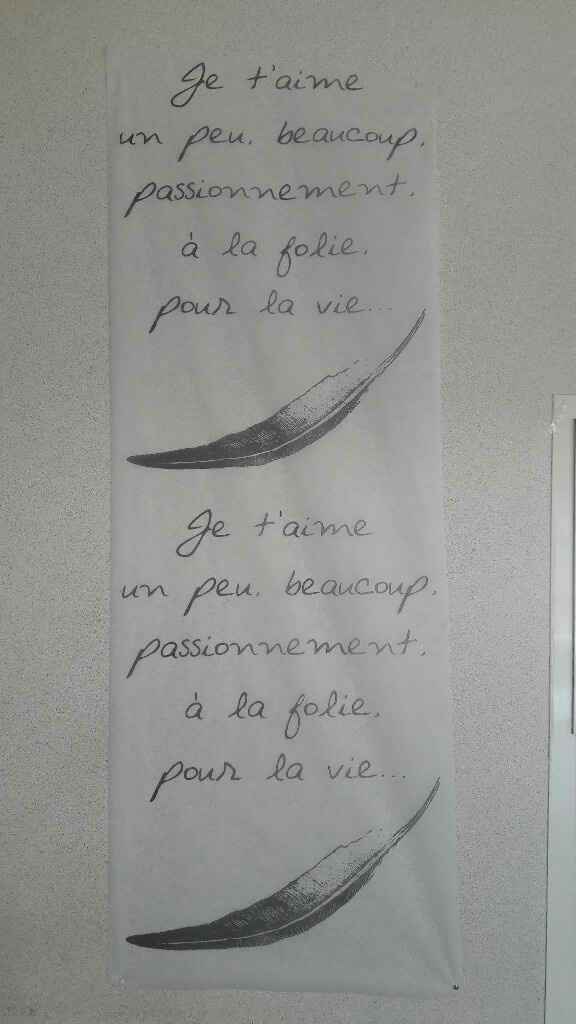 Je t'aime
un peu, beaucoup,
passionnement,
à la folie,
pour la vie...
Je t'aime
un peu, beaucoup,
passionnement,
à la folie,
pour la vie...